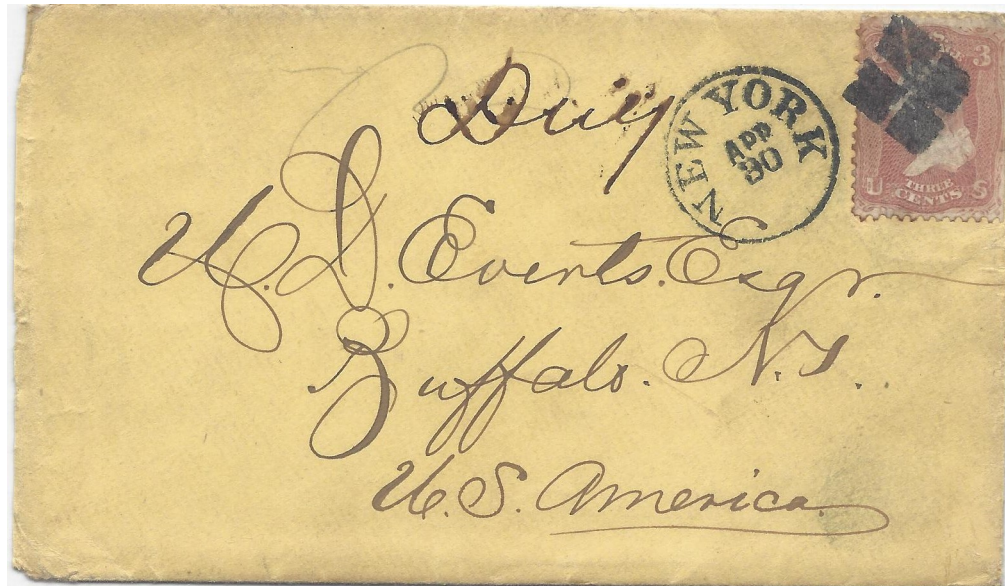 NEW YORK
APR
30
3
U S
THREE
CENTS
Evarts. Esqr.
Buffalo. N.Y.
U.S. America